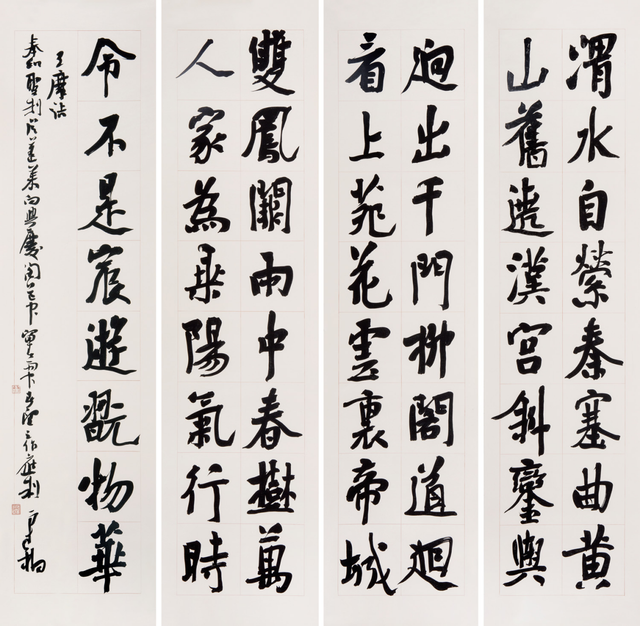 渭水自縈秦塞曲黃
山舊遶漢宮斜鑾輿
迥出千門柳閣道廻
看上苑花雲裏帝城
雙鳳闕雨中春樹萬
人家為乘陽氣行時
令不是宸遊翫物華
王摩詰
奉和聖制從蓬萊向興慶閣道中留春雨中春望之作應制